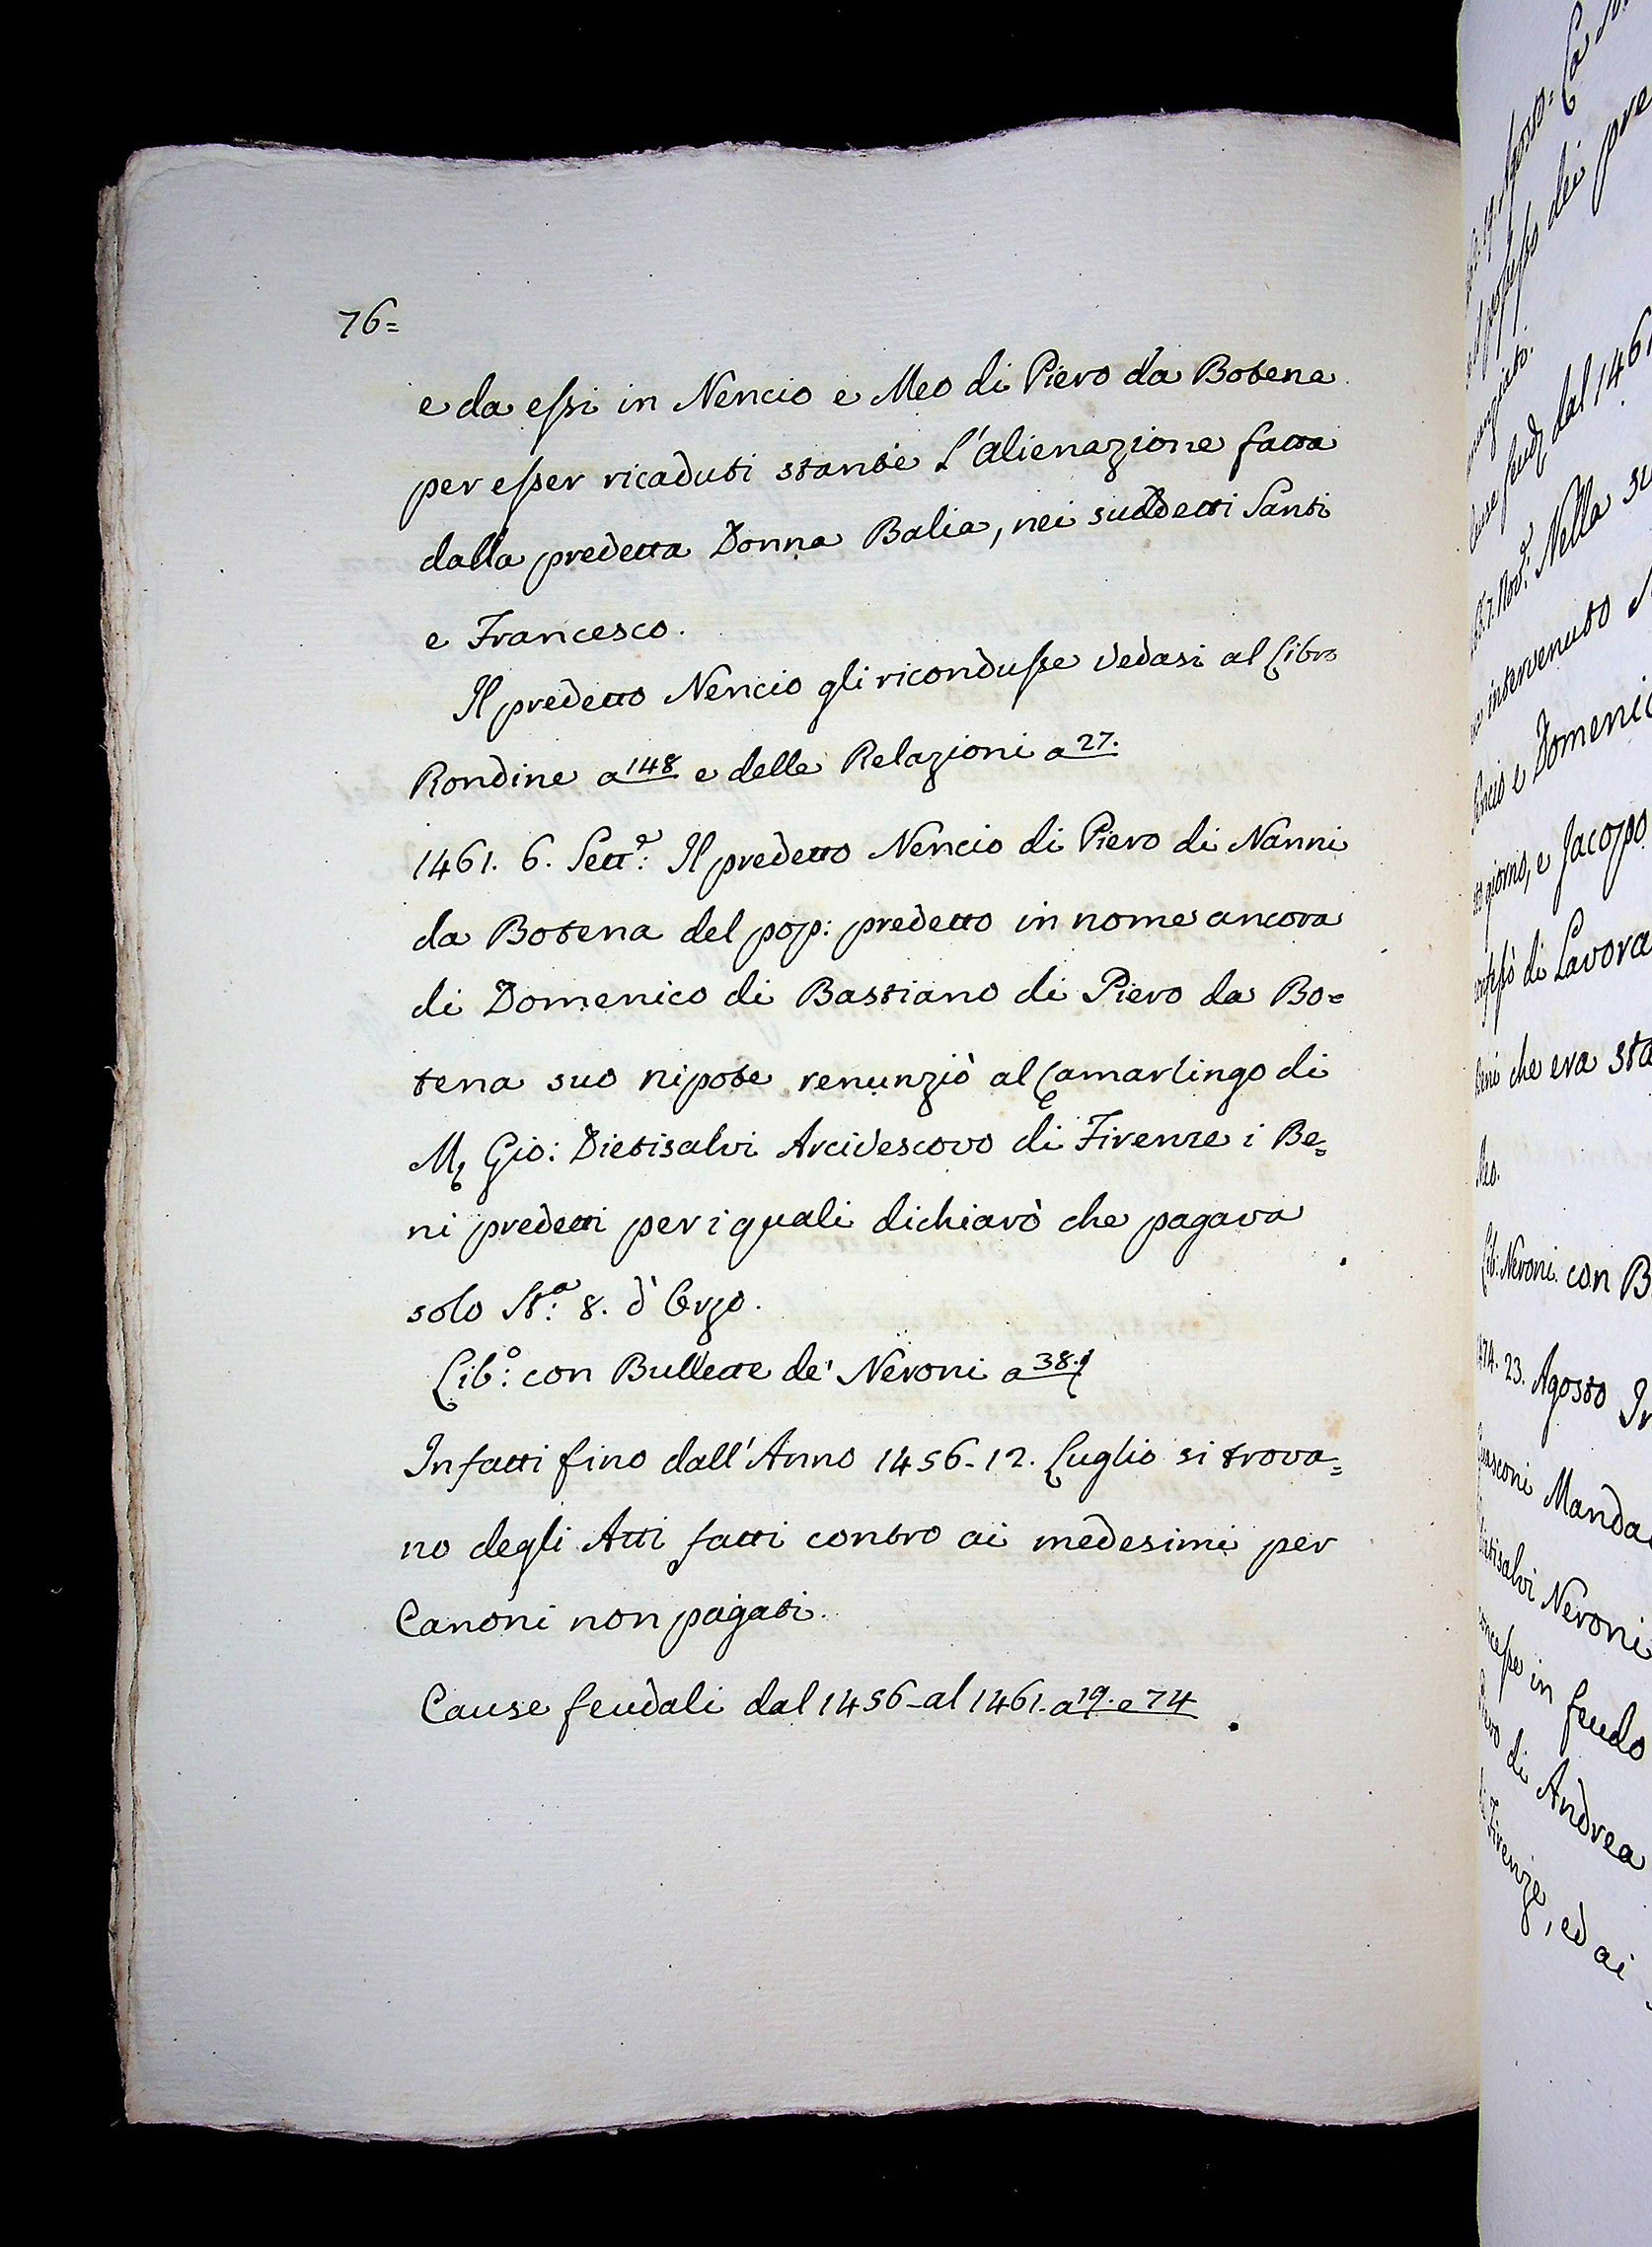 76=
e da essi in Nencio e Meo di Piero da Botena
per esser ricaduti stante l'alienazione fatta
dalla predetta Donna Balia, nei suddetti Santi
e Francesco.
Il predetto Nencio gli ricondusse vedasi al Libro
Rondine a 148 e delle Relazioni a 27.
1461. 6. Sett.e: Il predetto Nencio di Piero di Nanni
da Botena del pop: predetto in nome ancora
di Domenico di Bastiano di Piero da Bo=
tena suo nipote renunziò al Camarlingo di
M. Gio: Dietisalvi Arcivescovo di Firenze i Be=
ni predetti per i quali dichiarò che pagava
solo St.a: 8. d'Orzo.
Lib.o: con Bullette de' Neroni a 38.
Infatti fino dall'Anno 1456-12. Luglio si trova=
no degli Atti fatti contro ai medesimi per
Canoni non pagati.
Cause feudali dal 1456-al 1461. a 19. e 74
dei pre
dal 1461
Nov.e: Nella su
intervenuto
e Domenic
giorno, e Jacopo
di Lavora
che era sta
Meo.
Lib: Neroni con B
1474. 23. Agosto In
Manda
Dietisalvi Neroni
in feudo
di Andrea
di Firenze, ed ai